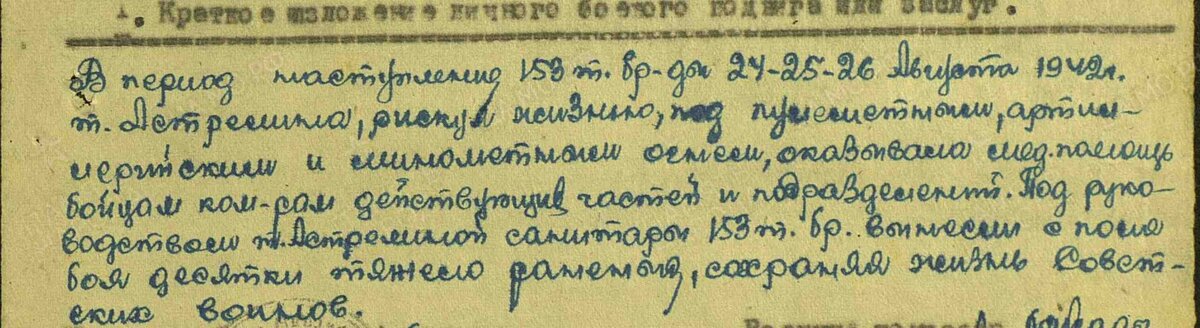 1. Краткое изложение личного боевого подвига или заслуг.
В период наступления 153 т. бр-ды 24-25-26 Августа 1942г.
т. Астрелина, рискуя жизнью, под пулеметным, артил-
лерийским и минометным огнем, оказывала мед. помощь
бойцам ком-рам действующих частей и подразделений. Под руко-
водством т. Астрелиной санитары 153 т. бр. вынесли с поля
боя десятки тяжело раненых, сохраняя жизнь Совет-
ских воинов.